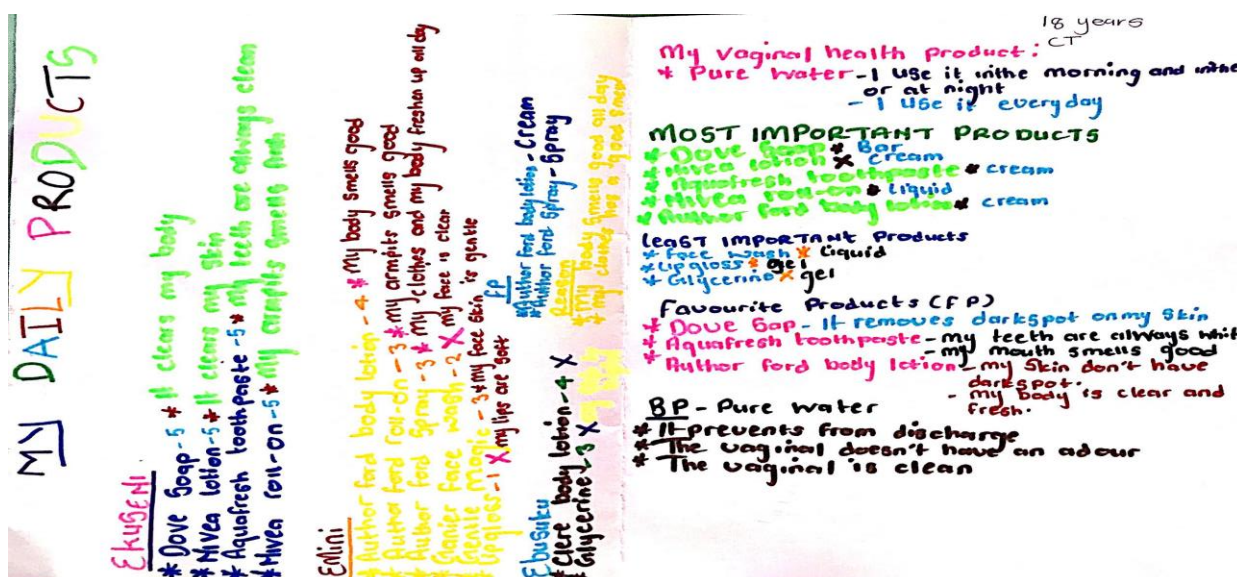 MY DAILY PRODUCTS
EkuSENI
* Dove Soap - 5 * It clears my body
* Nivea lotion - 5 * It clears my skin
* Aquafresh toothpaste - 5 * my teeth are always clean
* Nivea roll-on - 5 * My armpits smells fresh
EMini
* Author Ford body lotion - 4 * my body smells good
* Author Ford roll-on - 3 * my armpits smells good
* Author Ford Spray - 3 * my clothes and my body freshen up all day
* Ganier Face wash - 2 X my face is clear
* Gentle Magic - 3 * my face skin is gentle
* Lipgloss - 1 X my lips are soft
Ebusuku
* Clere body lotion - 4 X
* Glycerine - 3 X
FP
* Author Ford body lotion - Cream
* Author Ford Spray - Spray
Reason
* My body smells good all day
* my clothes has a good smell
18 years
CT
My vaginal health product:
* Pure water - I use it inthe morning and inthe
or at night
- I use it everyday
MOST IMPORTANT PRODUCTS
* Dove Soap * Bar
* Nivea lotion X cream
* Aquafresh toothpaste * cream
* Nivea roll-on * liquid
* Author Ford body lotion * cream
Least IMPORTANT Products
* Face wash * Liquid
* Lipgloss * gel
* Glycerine X gel
Favourite Products (FP)
* Dove Sop - It removes darkspot on my skin
* Aquafresh toothpaste - my teeth are always
- my mouth smells good
* Author Ford body lotion - my skin don't have
darkspot.
- my body is clear and
fresh.
BP - Pure water
* It prevents from discharge
* The vaginal doesn't have an adour
* The vaginal is clean